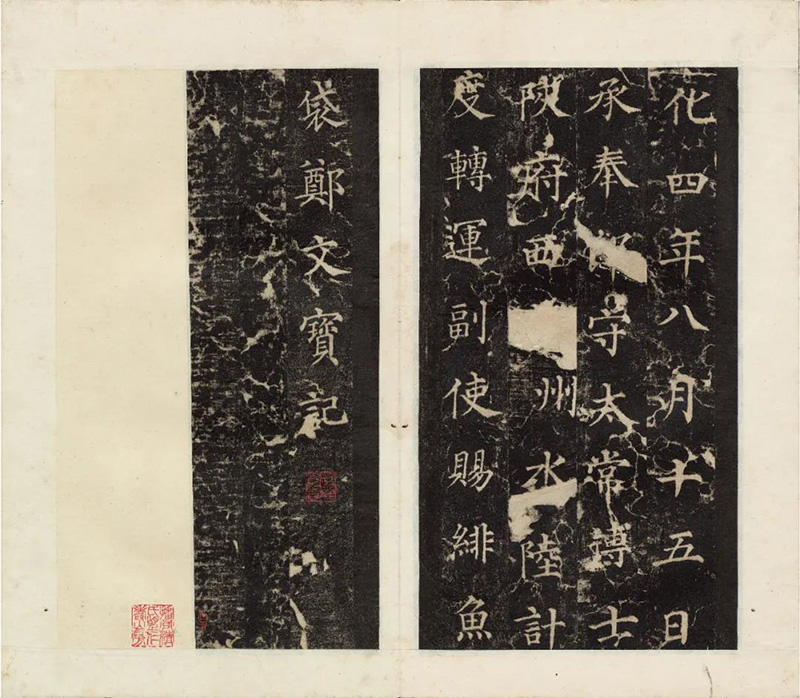 化四年八月十五日
承奉郎守太常博士
陝府西州水陸計
度轉運副使賜緋魚
袋鄭文寶記